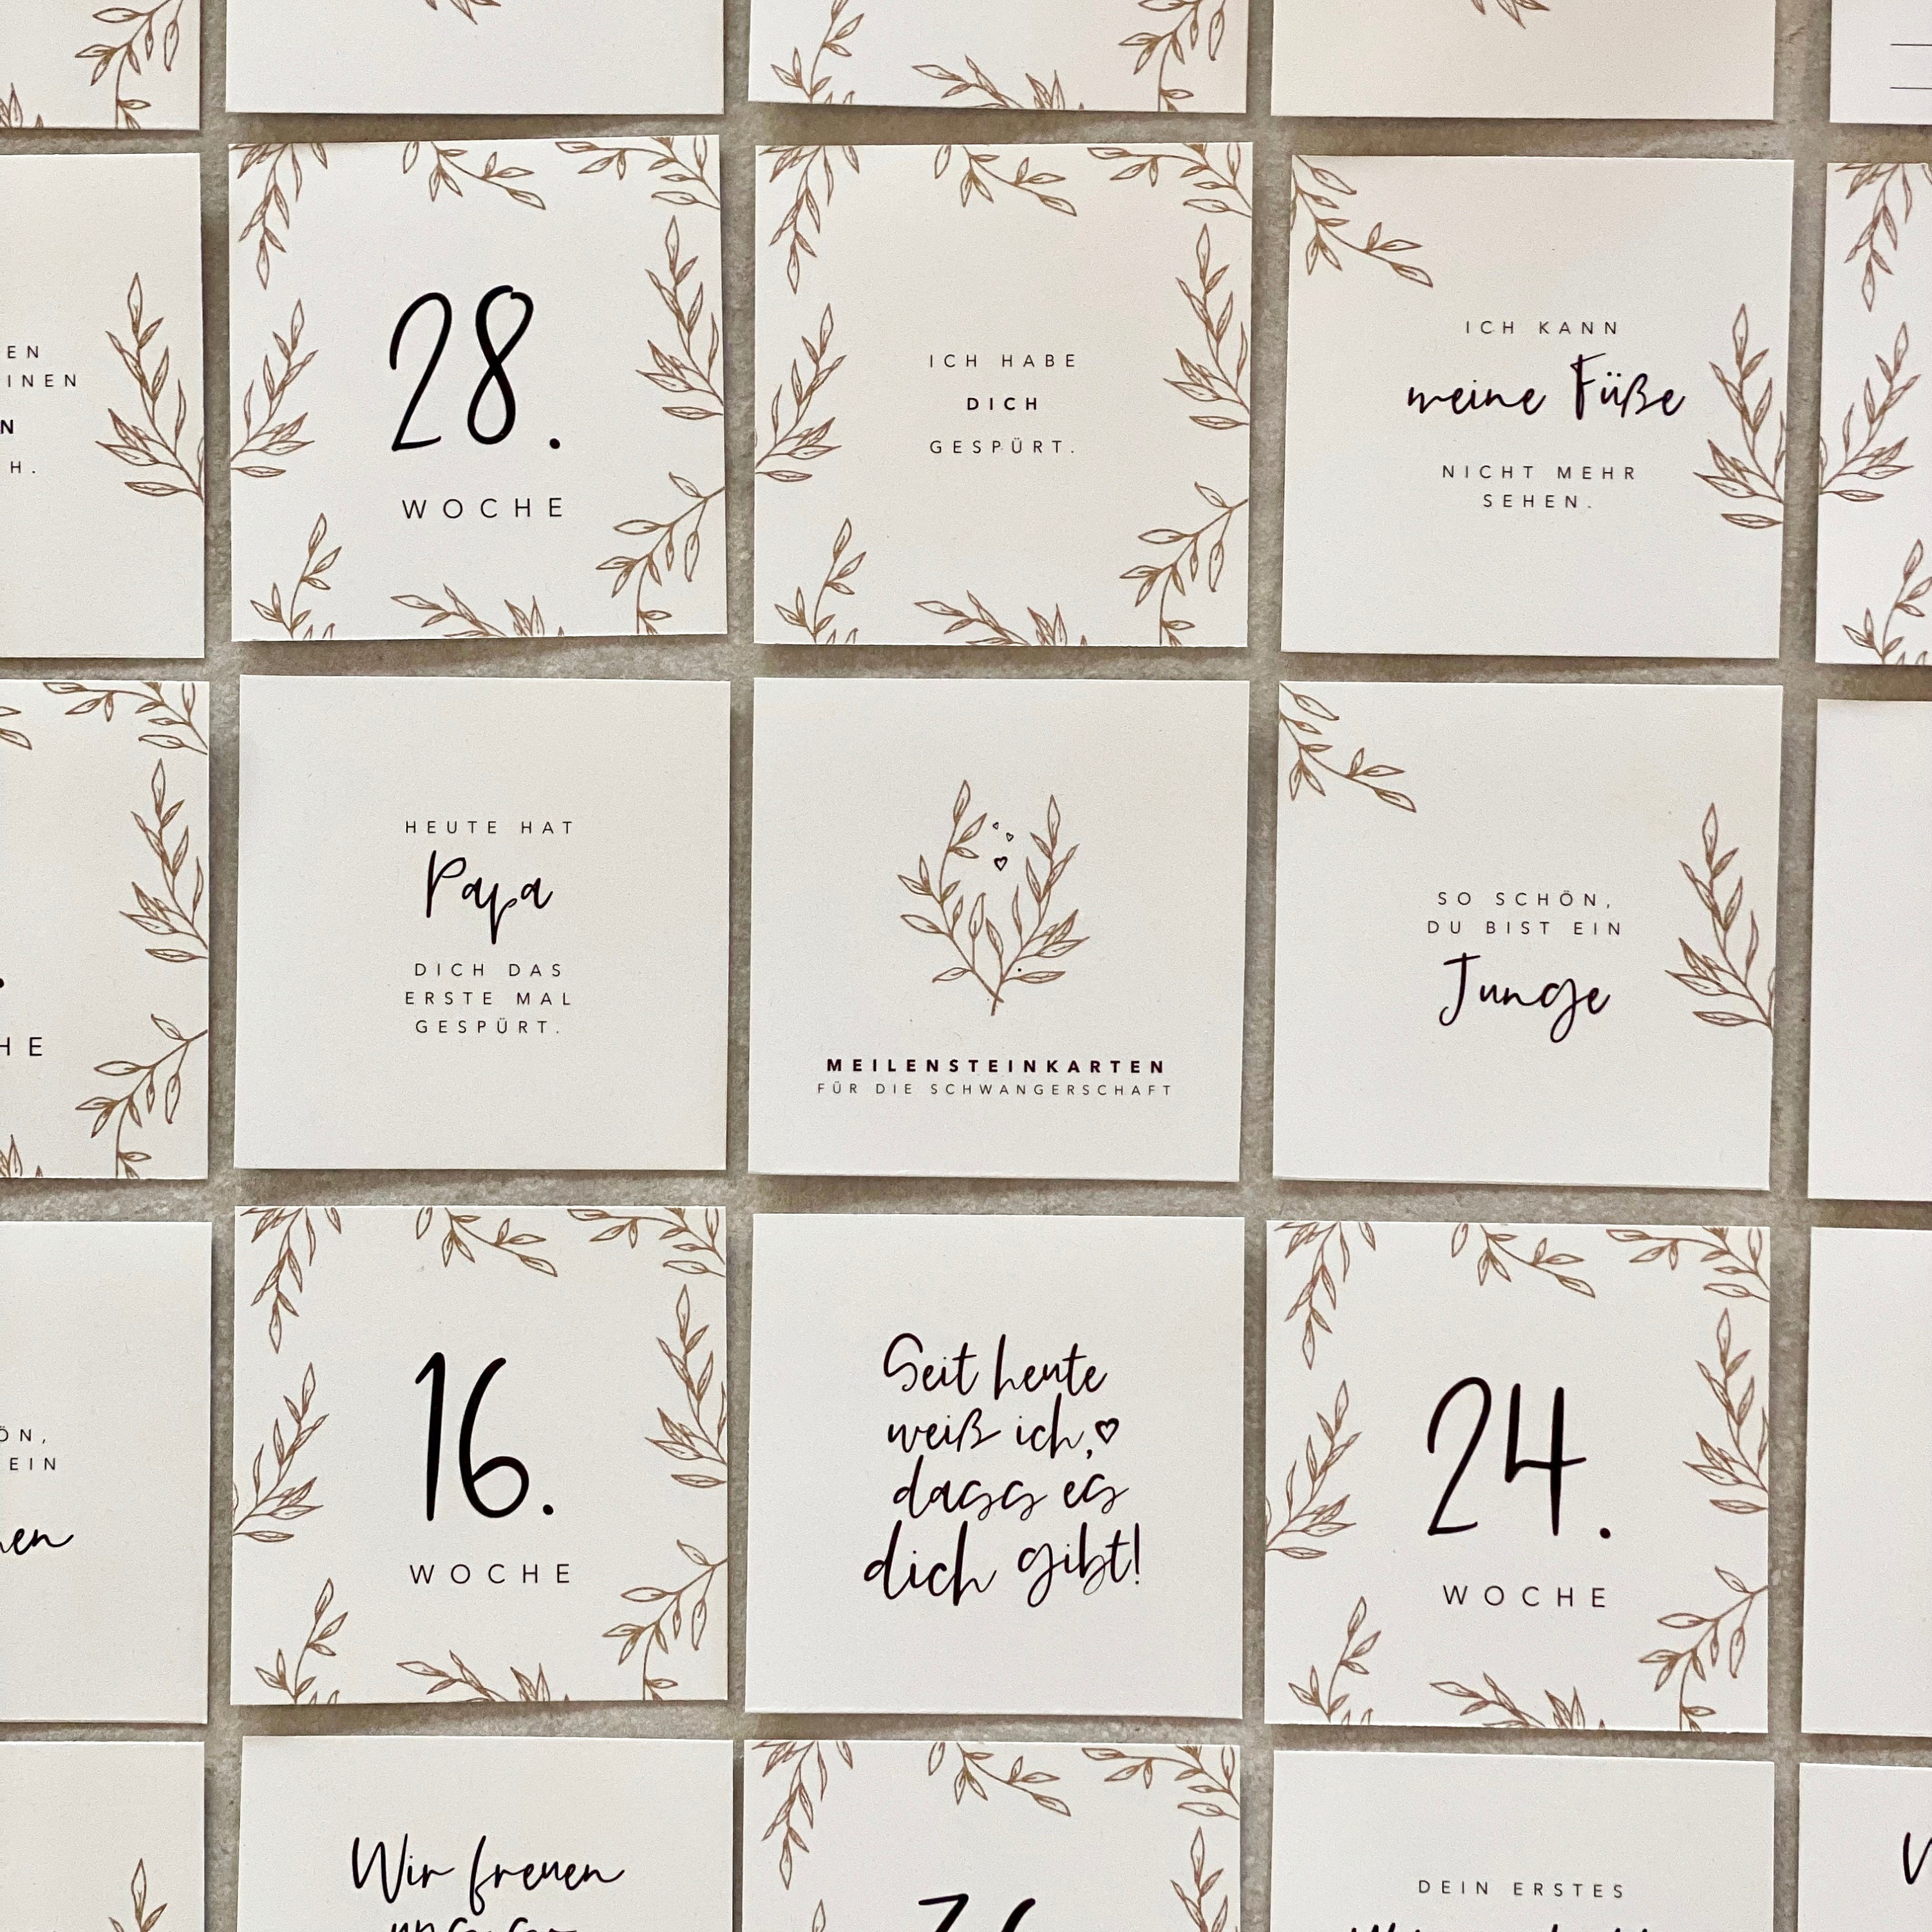 H.
28.
WOCHE
ICH HABE
DICH
GESPÜRT.
ICH KANN
meine Füße
NICHT MEHR
SEHEN.
HEUTE HAT
Papa
DICH DAS
ERSTE MAL
GESPÜRT.
MEILENSTEINKARTEN
FÜR DIE SCHWANGERSCHAFT
SO SCHÖN,
DU BIST EIN
Junge
EIN
16.
WOCHE
Seit heute
weiß ich,
dass es
dich gibt!
24.
WOCHE
Wir freuen
DEIN ERSTES